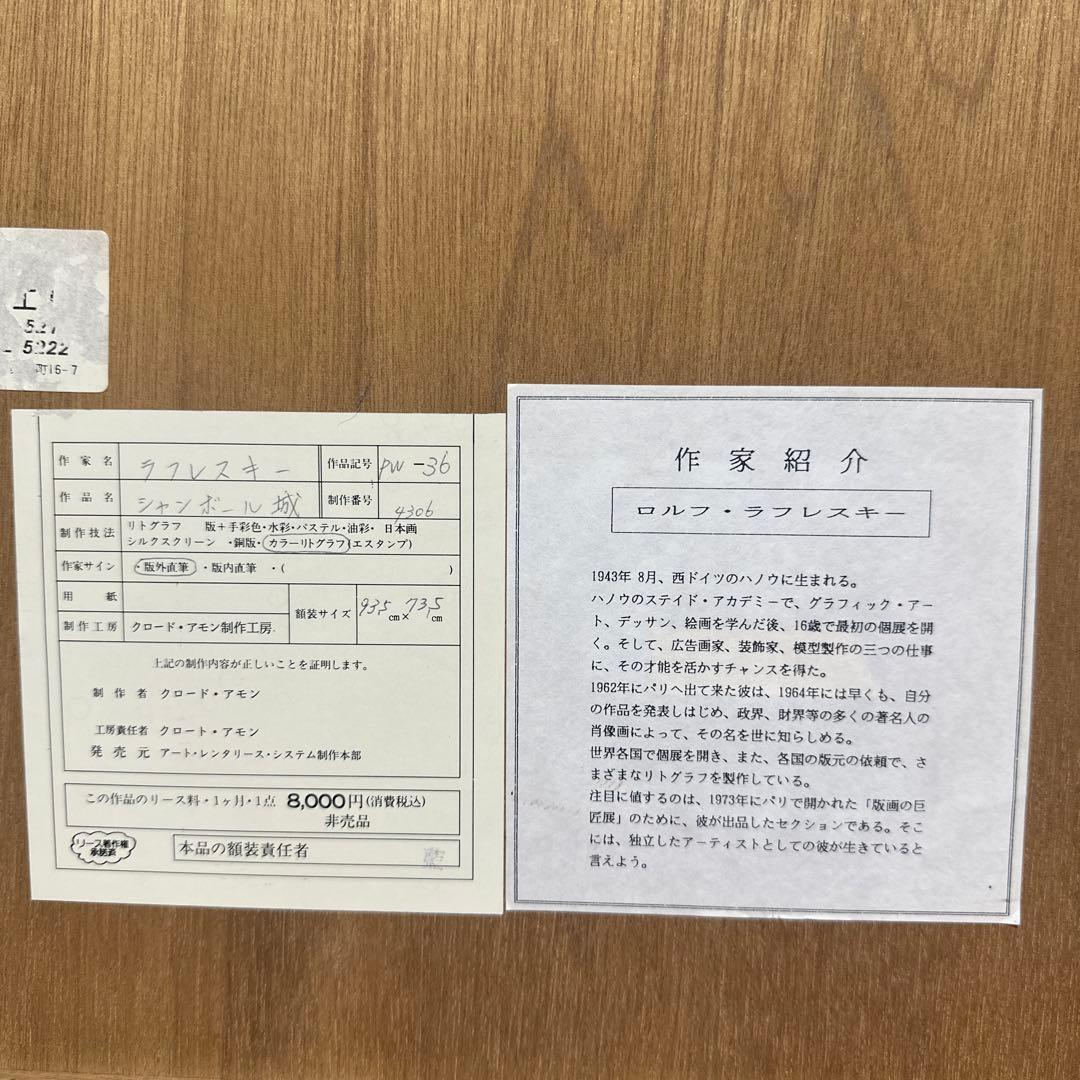 上
521
5222
町15-7
作家名 ラフレスキー 作品記号 PW-36
作品名 シャンボール城 制作番号 4306
制作技法 リトグラフ 版+手彩色・水彩・パステル・油彩・日本画
シルクスクリーン ・銅版・カラーリトグラフ(エスタンプ)
作家サイン ・版外直筆 ・版内直筆 ・( )
用紙 額装サイズ 93.5cm×73.5cm
制作工房 クロード・アモン制作工房.
上記の制作内容が正しいことを証明します。
制作者 クロード・アモン
工房責任者 クロート・アモン
発売元 アート・レンタリース・システム制作本部
この作品のリース料・1ヶ月・1点 8,000円(消費税込)
非売品
リース著作権
承諾済
本品の額装責任者 藍
作家紹介
ロルフ・ラフレスキー
1943年 8月、西ドイツのハノウに生まれる。
ハノウのステイド・アカデミーで、グラフィック・アー
ト、デッサン、絵画を学んだ後、16歳で最初の個展を開
く。そして、広告画家、装飾家、模型製作の三つの仕事
に、その才能を活かすチャンスを得た。
1962年にパリへ出て来た彼は、1964年には早くも、自分
の作品を発表しはじめ、政界、財界等の多くの著名人の
肖像画によって、その名を世に知らしめる。
世界各国で個展を開き、また、各国の版元の依頼で、さ
まざまなリトグラフを製作している。
注目に値するのは、1973年にパリで開かれた「版画の巨
匠展」のために、彼が出品したセクションである。そこ
には、独立したアーティストとしての彼が生きていると
言えよう。